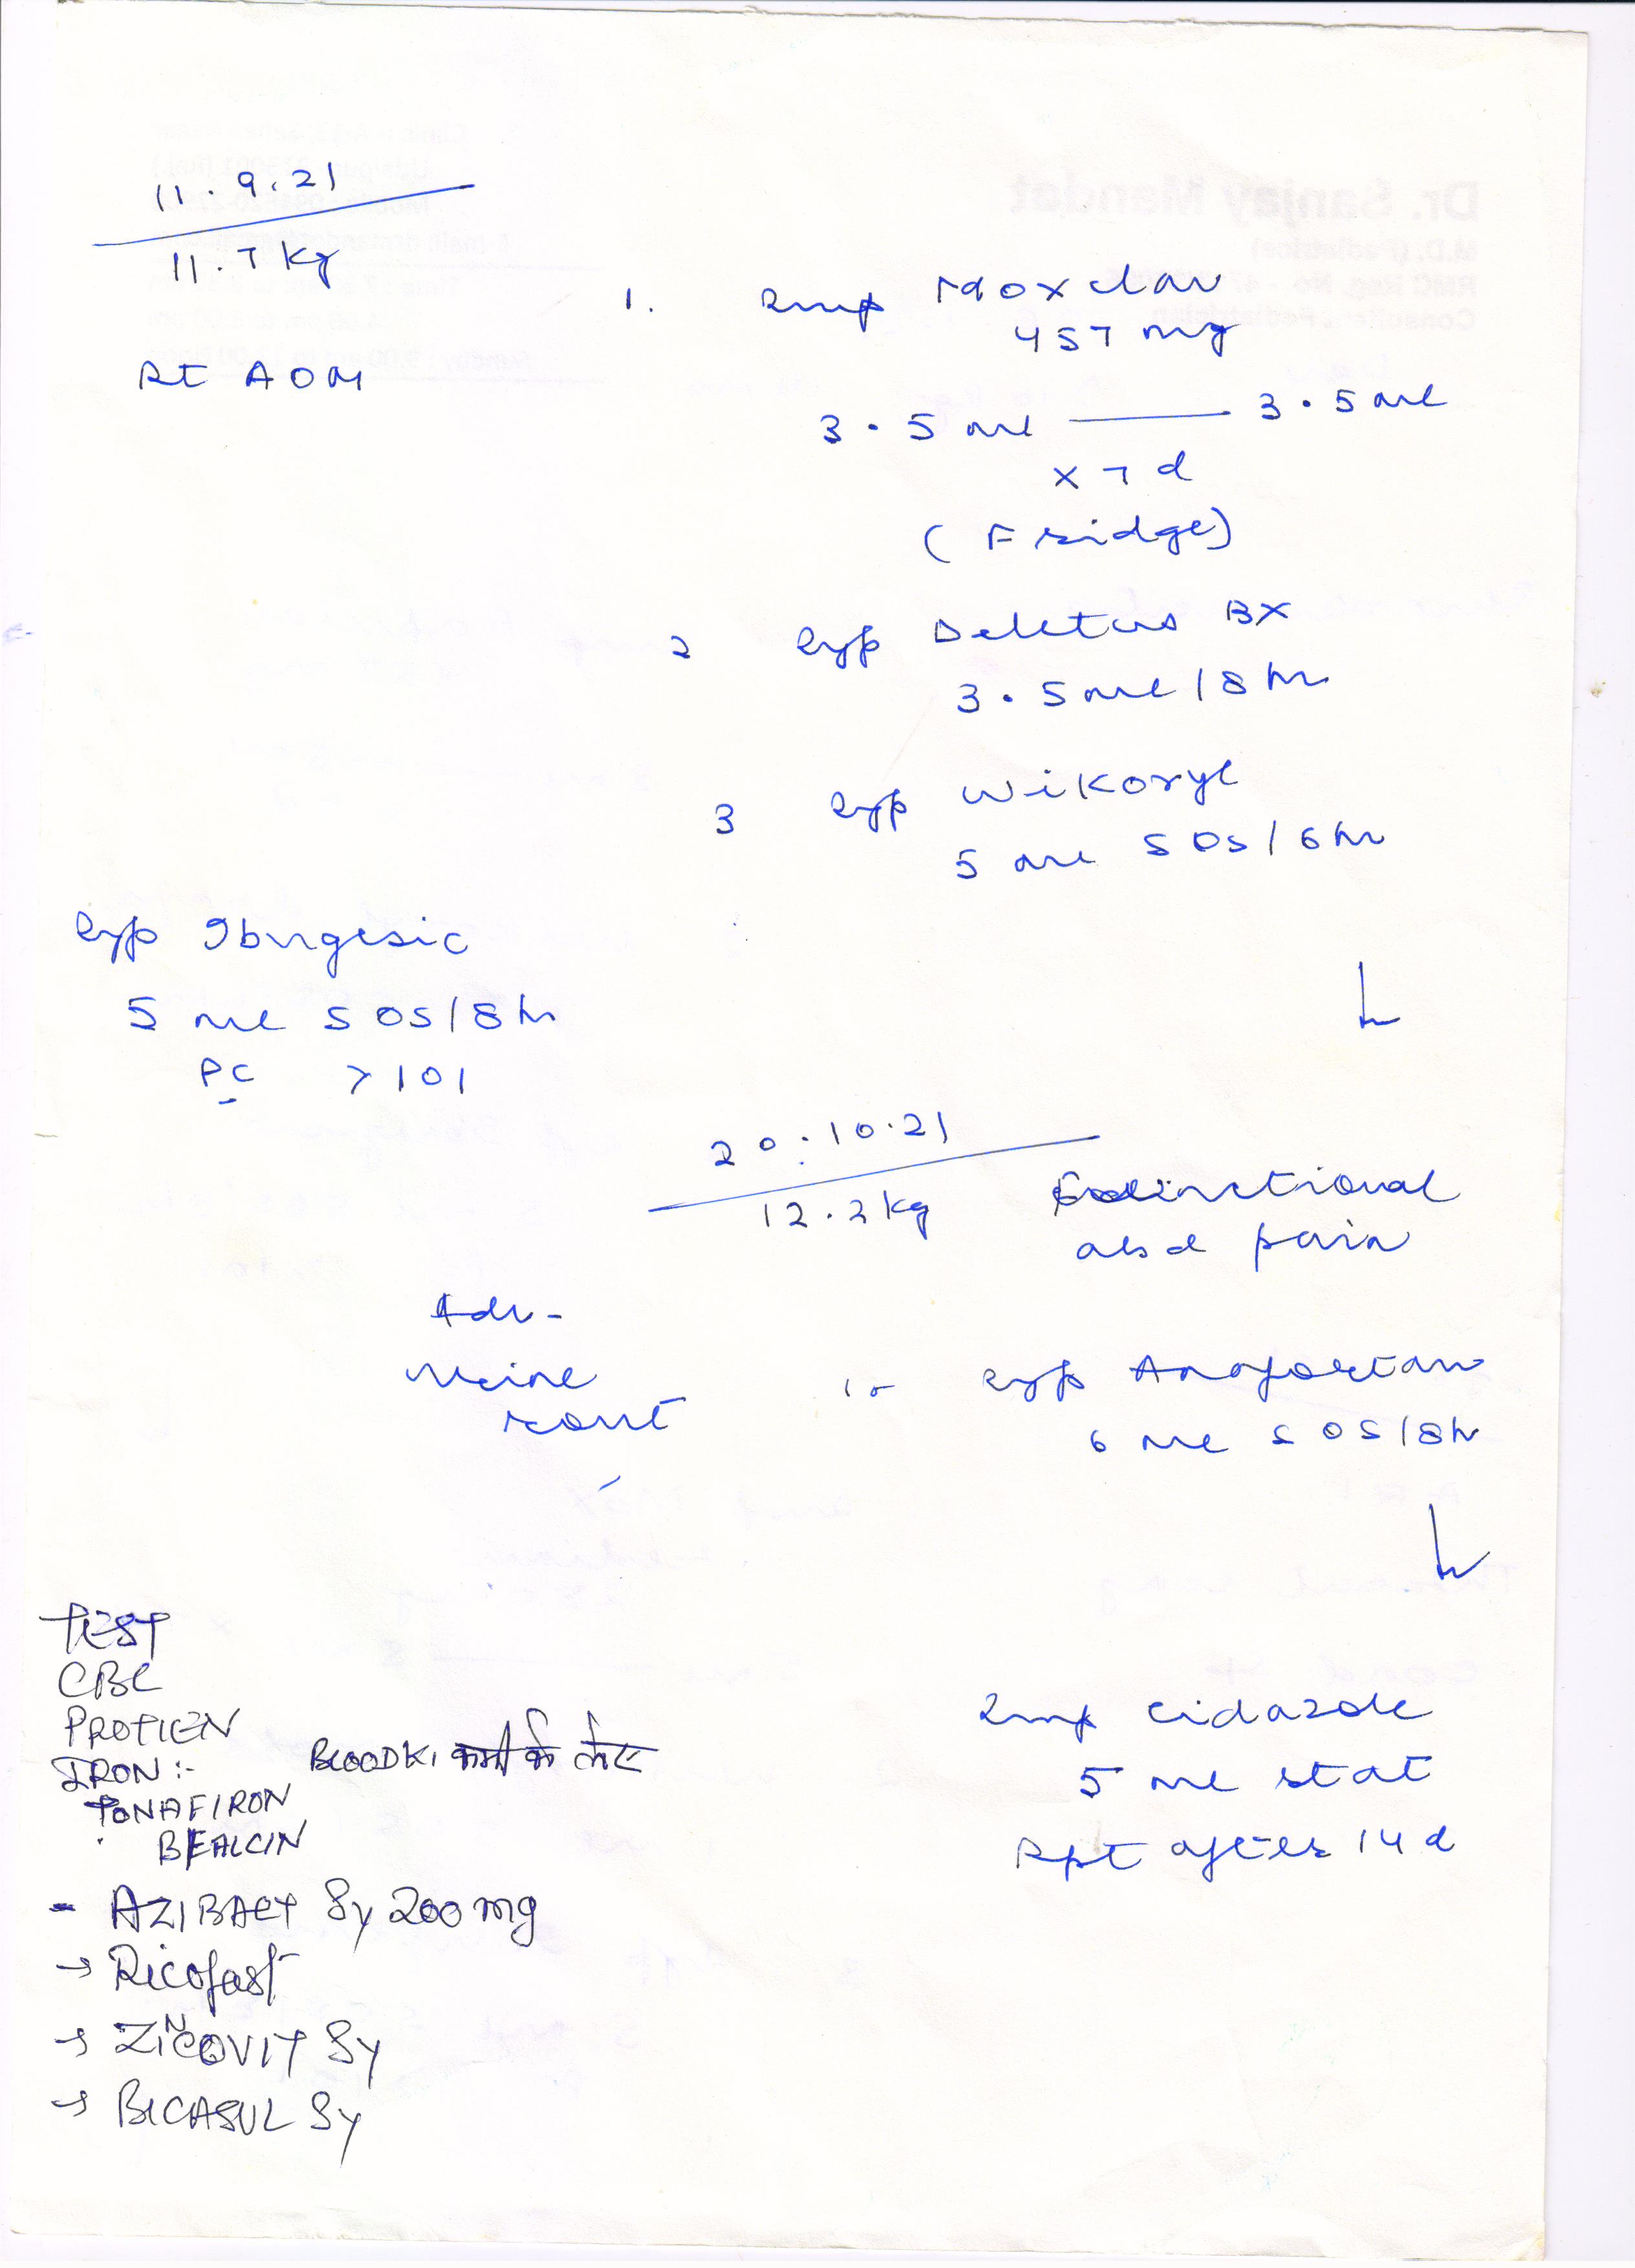 11.9.21
11.7 kg
Rt AOM
1. Susp Moxclav
457 mg
3.5 ml — 3.5 ml
x 7 d
(Fridge)
2 Syp Deletus BX
3.5 ml / 8 hr
3 Syp Wikoryl
5 ml SOS / 6 hr
Syp Ibugesic
5 ml SOS / 8 hr
PC > 101
20.10.21
12.2 kg
Functional
abd pain
Adv -
Urine
rout
1- Syp Anafortan
6 ml SOS / 8 hr
TEST
CBC
PROTIEN
IRON :-
TONAFIRON
BEALCIN
BLOOD KI
Susp Cidazole
5 ml stat
Rpt after 14 d
- AZIBACT Sy 200 mg
→ Ricofast
→ ZINCOVIT Sy
→ BICASUL Sy